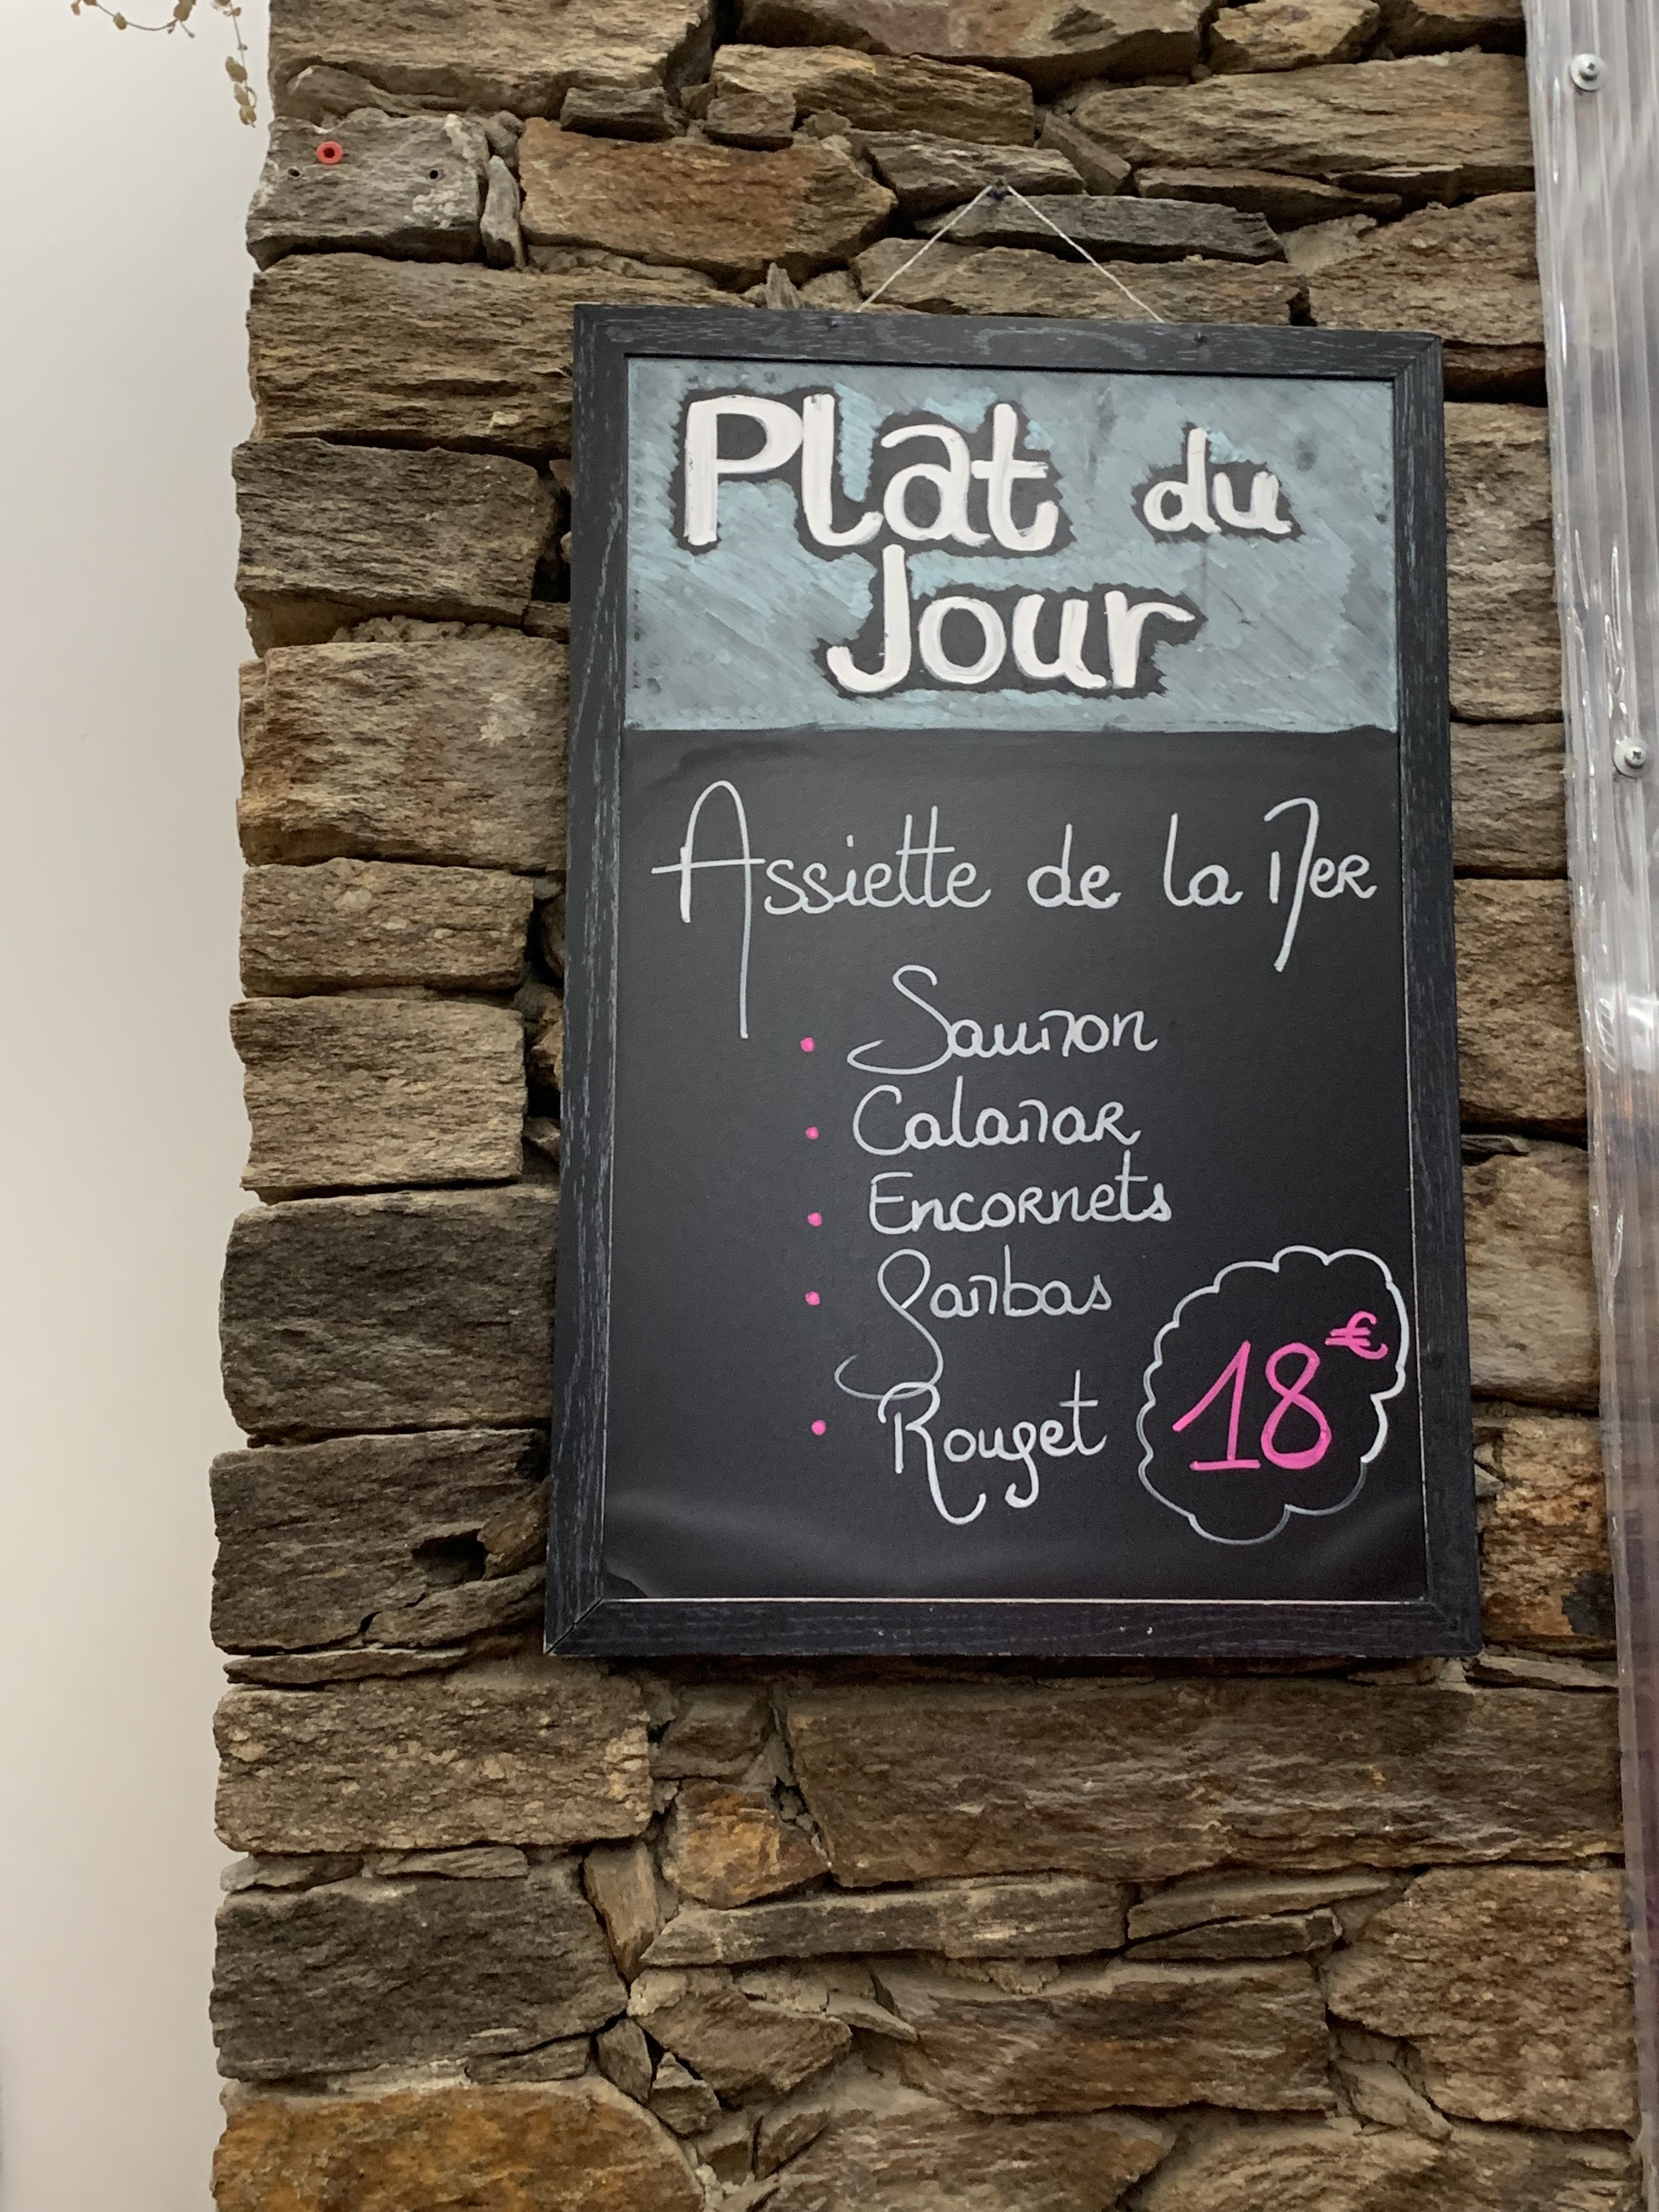 Plat du
Jour
Assiette de la Mer
• Saumon
• Calamar
• Encornets
• Gambas
• Rouget
18€